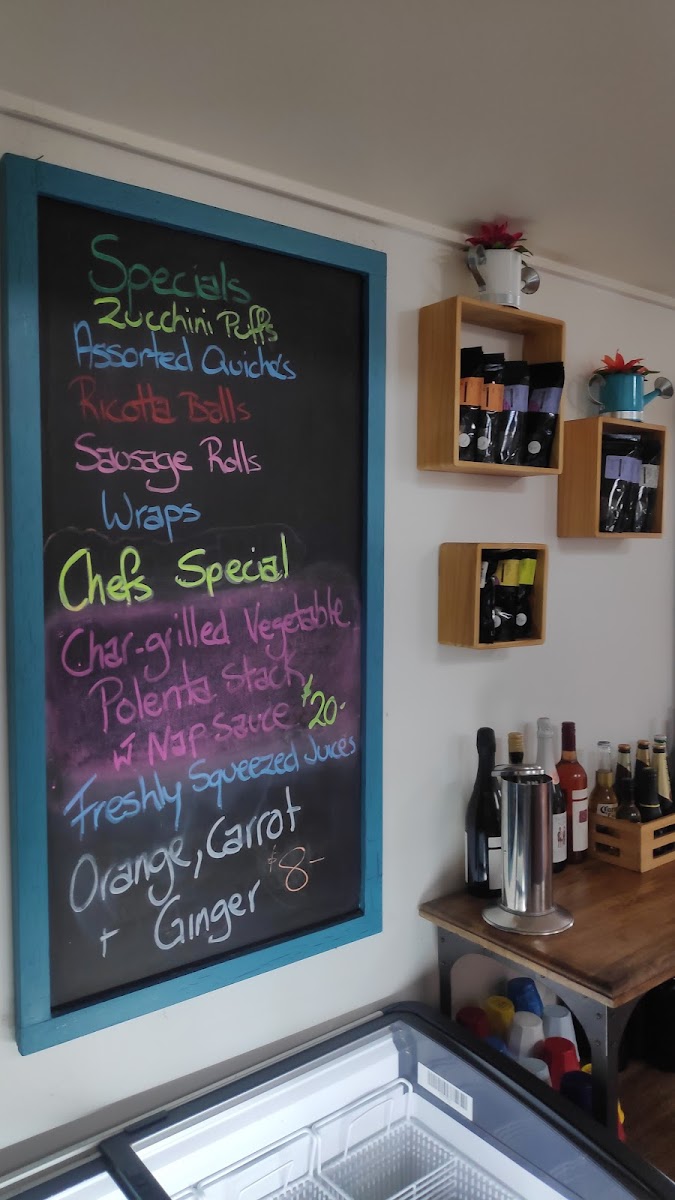 Specials
Zucchini Puffs
Assorted Quiche's
Ricotta Balls
Sausage Rolls
Wraps
Chefs Special
Char-grilled Vegetable
Polenta Stack
w Nap Sauce $20-
Freshly Squeezed Juices
Orange, Carrot
+ Ginger $8-